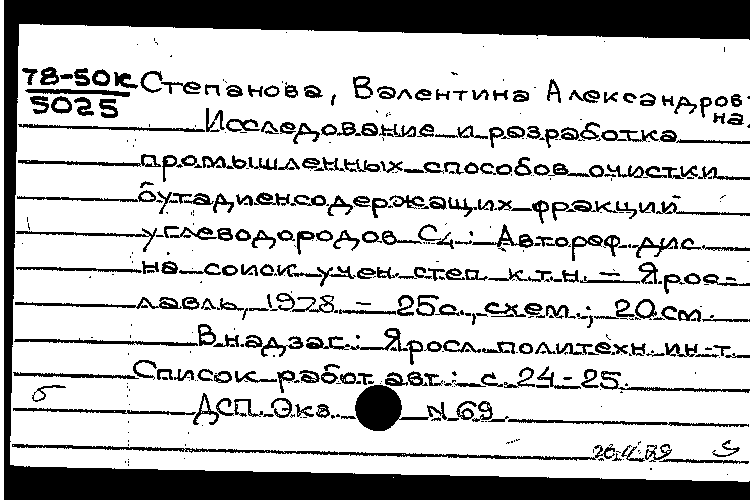 78-50к
5025
Степанова, Валентина Александров-
на.
Исследование и разработка
промышленных способов очистки
бутадиенсодержащих фракций
углеводородов C4: Автореф. дис.
на соиск. учен. степ. к.т.н. — Яросо-
лавль, 1978. — 25с., схем.; 20см.
В надзаг.: Яросл. политехн. ин-т.
Список работ авт.: с. 24-25.
б
ДСП. Экз. N 69.